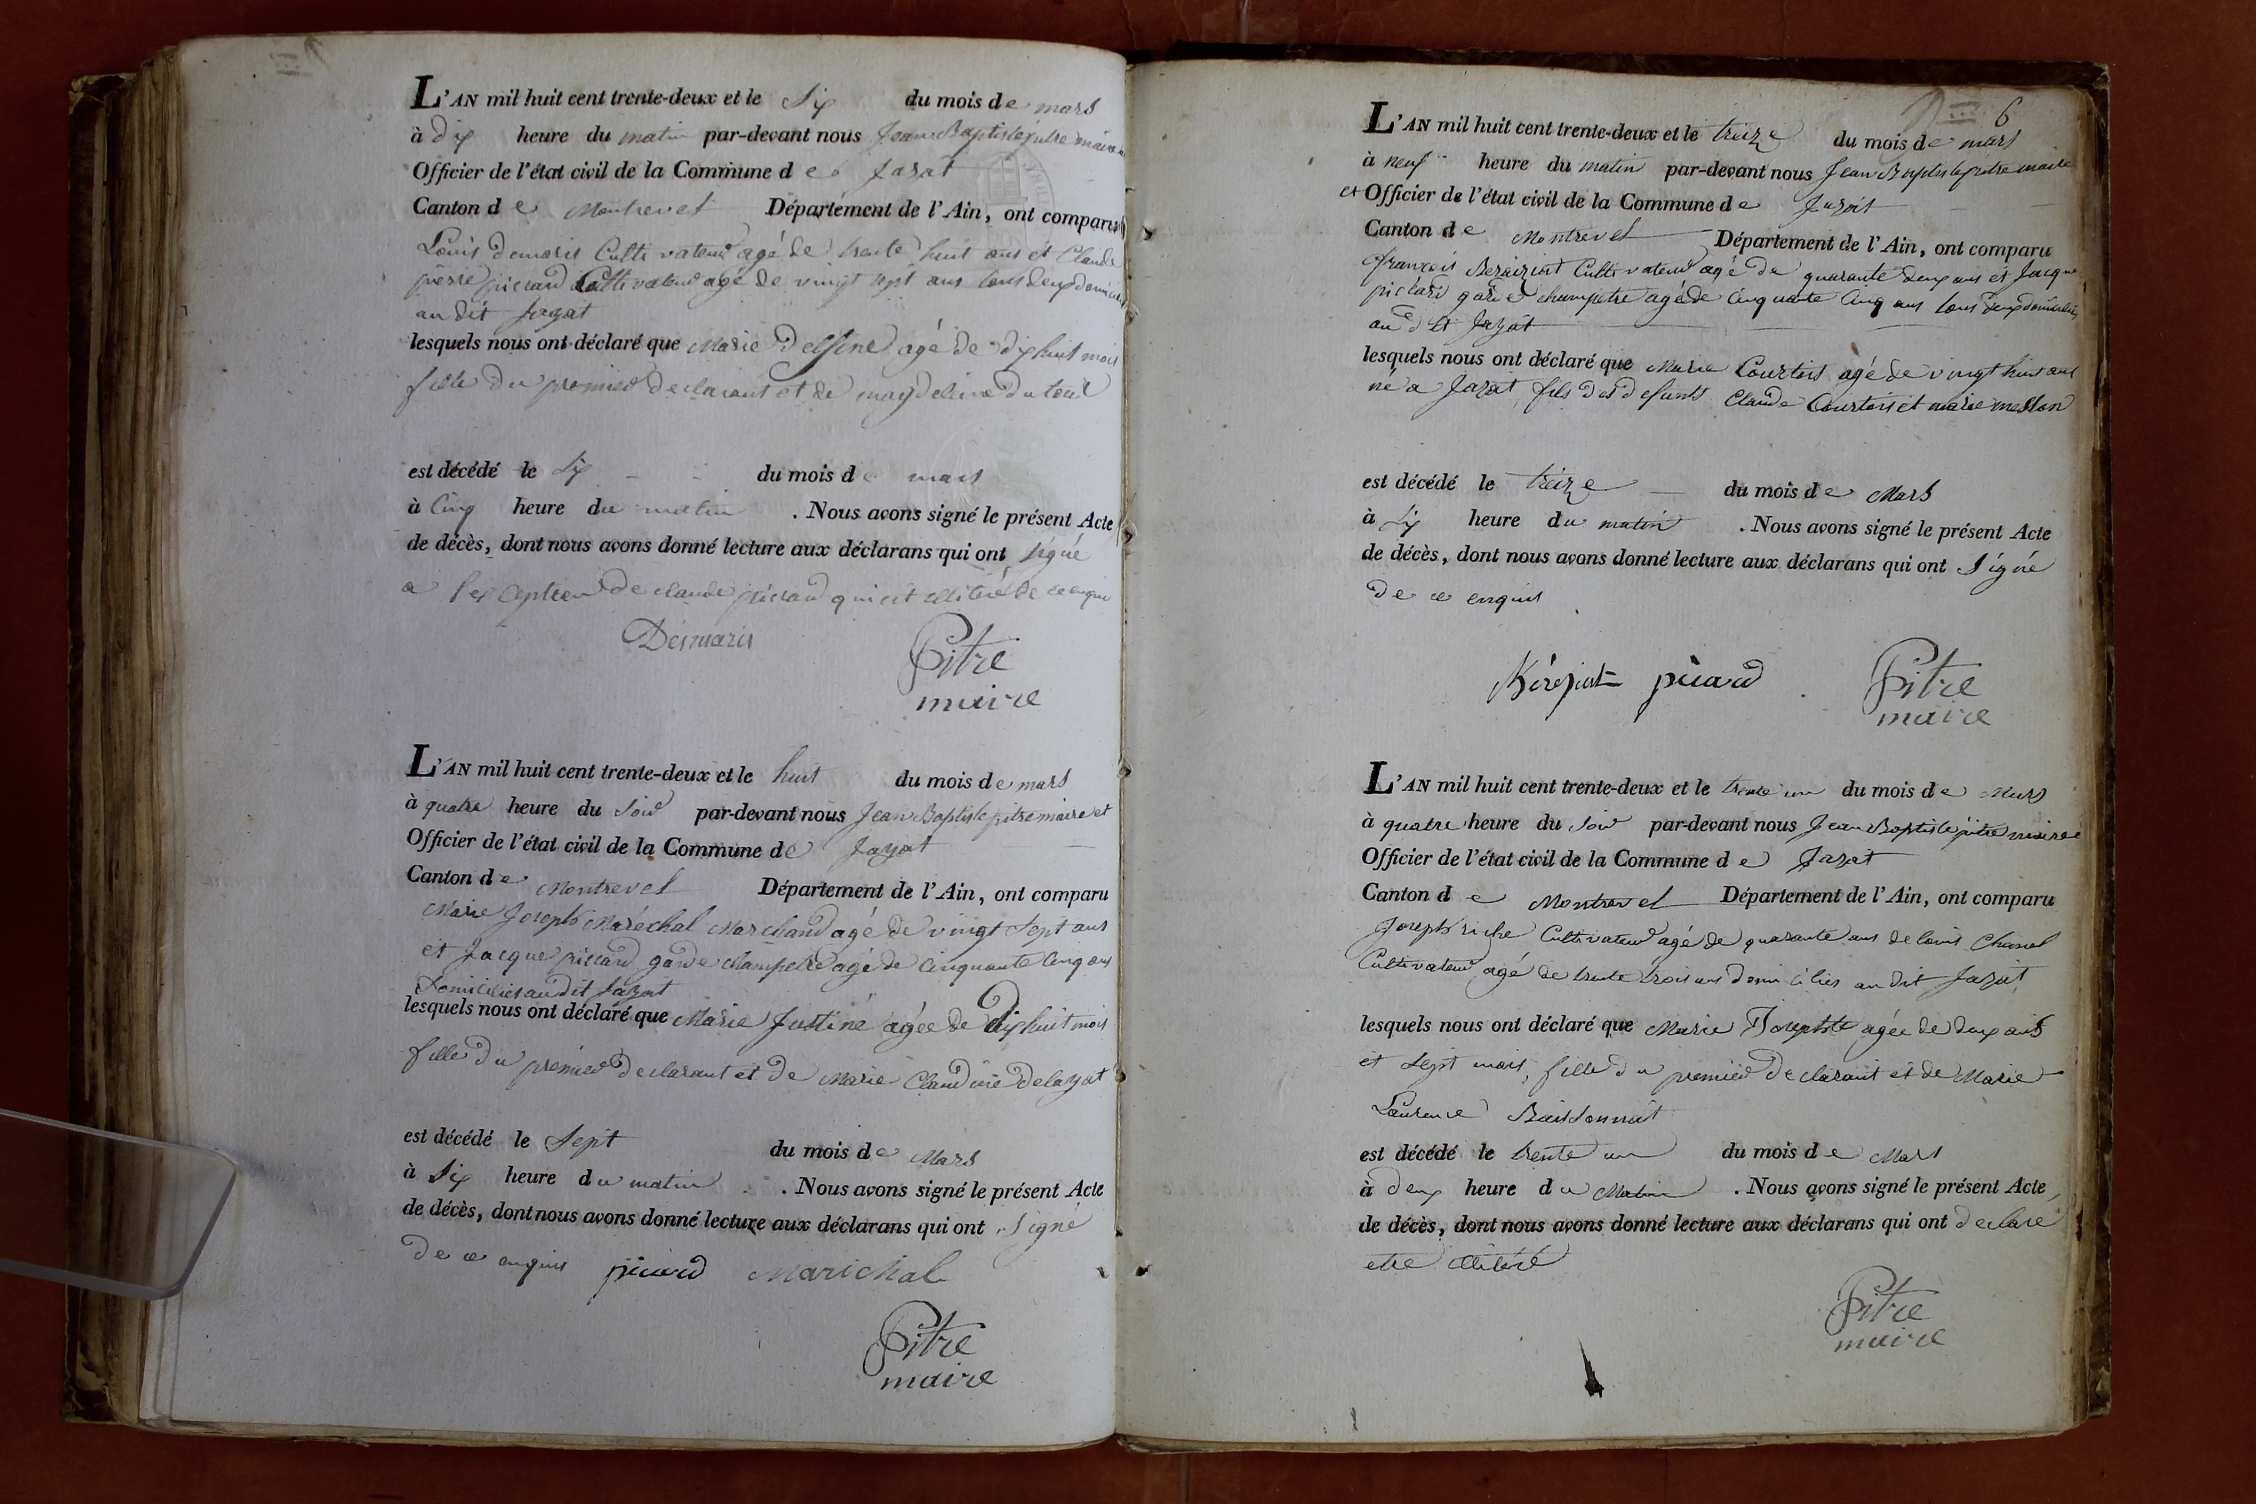 L'AN mil huit cent trente-deux et le Six du mois de mars
à dix heure du matin par-devant nous Jean Baptiste pitre maire
Officier de l'état civil de la Commune de Jayat
Canton de Montrevel Département de l'Ain, ont comparu
Louis Demaris Cultivateur agé de trente huit ans et Claude
pierre piccard Cultivateur agé de vingt sept ans tous deux domiciliés
au dit Jayat
lesquels nous ont déclaré que Marie Delfine agé de dix huit mois
fille du premier declarant et de magdeleine
est décédé le Six du mois de mars
à Cinq heure du matin . Nous avons signé le présent Acte
de décès, dont nous avons donné lecture aux déclarans qui ont signé
a l'exception de claude piccard qui est illitéré de ce enquis
Desmaris
Pitre
maire
L'AN mil huit cent trente-deux et le huit du mois de mars
à quatre heure du Soir par-devant nous Jean Baptiste pitre maire et
Officier de l'état civil de la Commune de Jayat
Canton de Montrevel Département de l'Ain, ont comparu
Marie Joseph Maréchal Marchand agé de vingt Sept ans
et Jacque piccard garde champetre agé de Cinquante Cinq ans
Domiciliés au dit Jayat
lesquels nous ont déclaré que Marie Justine agée de Dix huit mois
fille du premier declarant et de Marie Claudine Delayat
est décédé le Sept du mois de Mars
à Six heure du matin . Nous avons signé le présent Acte
de décès, dont nous avons donné lecture aux déclarans qui ont Signé
de ce enquis picard Marechal
Pitre
maire
6
L'AN mil huit cent trente-deux et le treize du mois de mars
à neuf heure du matin par-devant nous Jean Baptiste pitre maire
et Officier de l'état civil de la Commune de Jayat
Canton de Montrevel Département de l'Ain, ont comparu
françois Cultivateur agé de quarante deux ans et Jacque
garde champetre agé de Cinquante Cinq ans tous deux domiciliés
au dit Jayat
lesquels nous ont déclaré que Marie Courtois agé de vingt huit ans
né a Jayat fils des defunts Claude Courtois et marie
est décédé le treize du mois de Mars
à Six heure du matin . Nous avons signé le présent Acte
de décès, dont nous avons donné lecture aux déclarans qui ont Signé
de ce enquis
picard
Pitre
maire
L'AN mil huit cent trente-deux et le trente un du mois de Mars
à quatre heure du Soir par-devant nous Jean Baptiste pitre maire
Officier de l'état civil de la Commune de Jayat
Canton de Montrevel Département de l'Ain, ont comparu
Joseph riche Cultivateur agé de quarante ans de louis Chanel
Cultivateur agé de trente trois ans domiciliés au dit Jayat
lesquels nous ont déclaré que Marie Josephte agée de deux ans
et Sept mois, fille du premier declarant et de Marie
Laurence
est décédé le trente un du mois de Mars
à deux heure du Matin . Nous avons signé le présent Acte
de décès, dont nous avons donné lecture aux déclarans qui ont declaré
etre illitéré
Pitre
maire